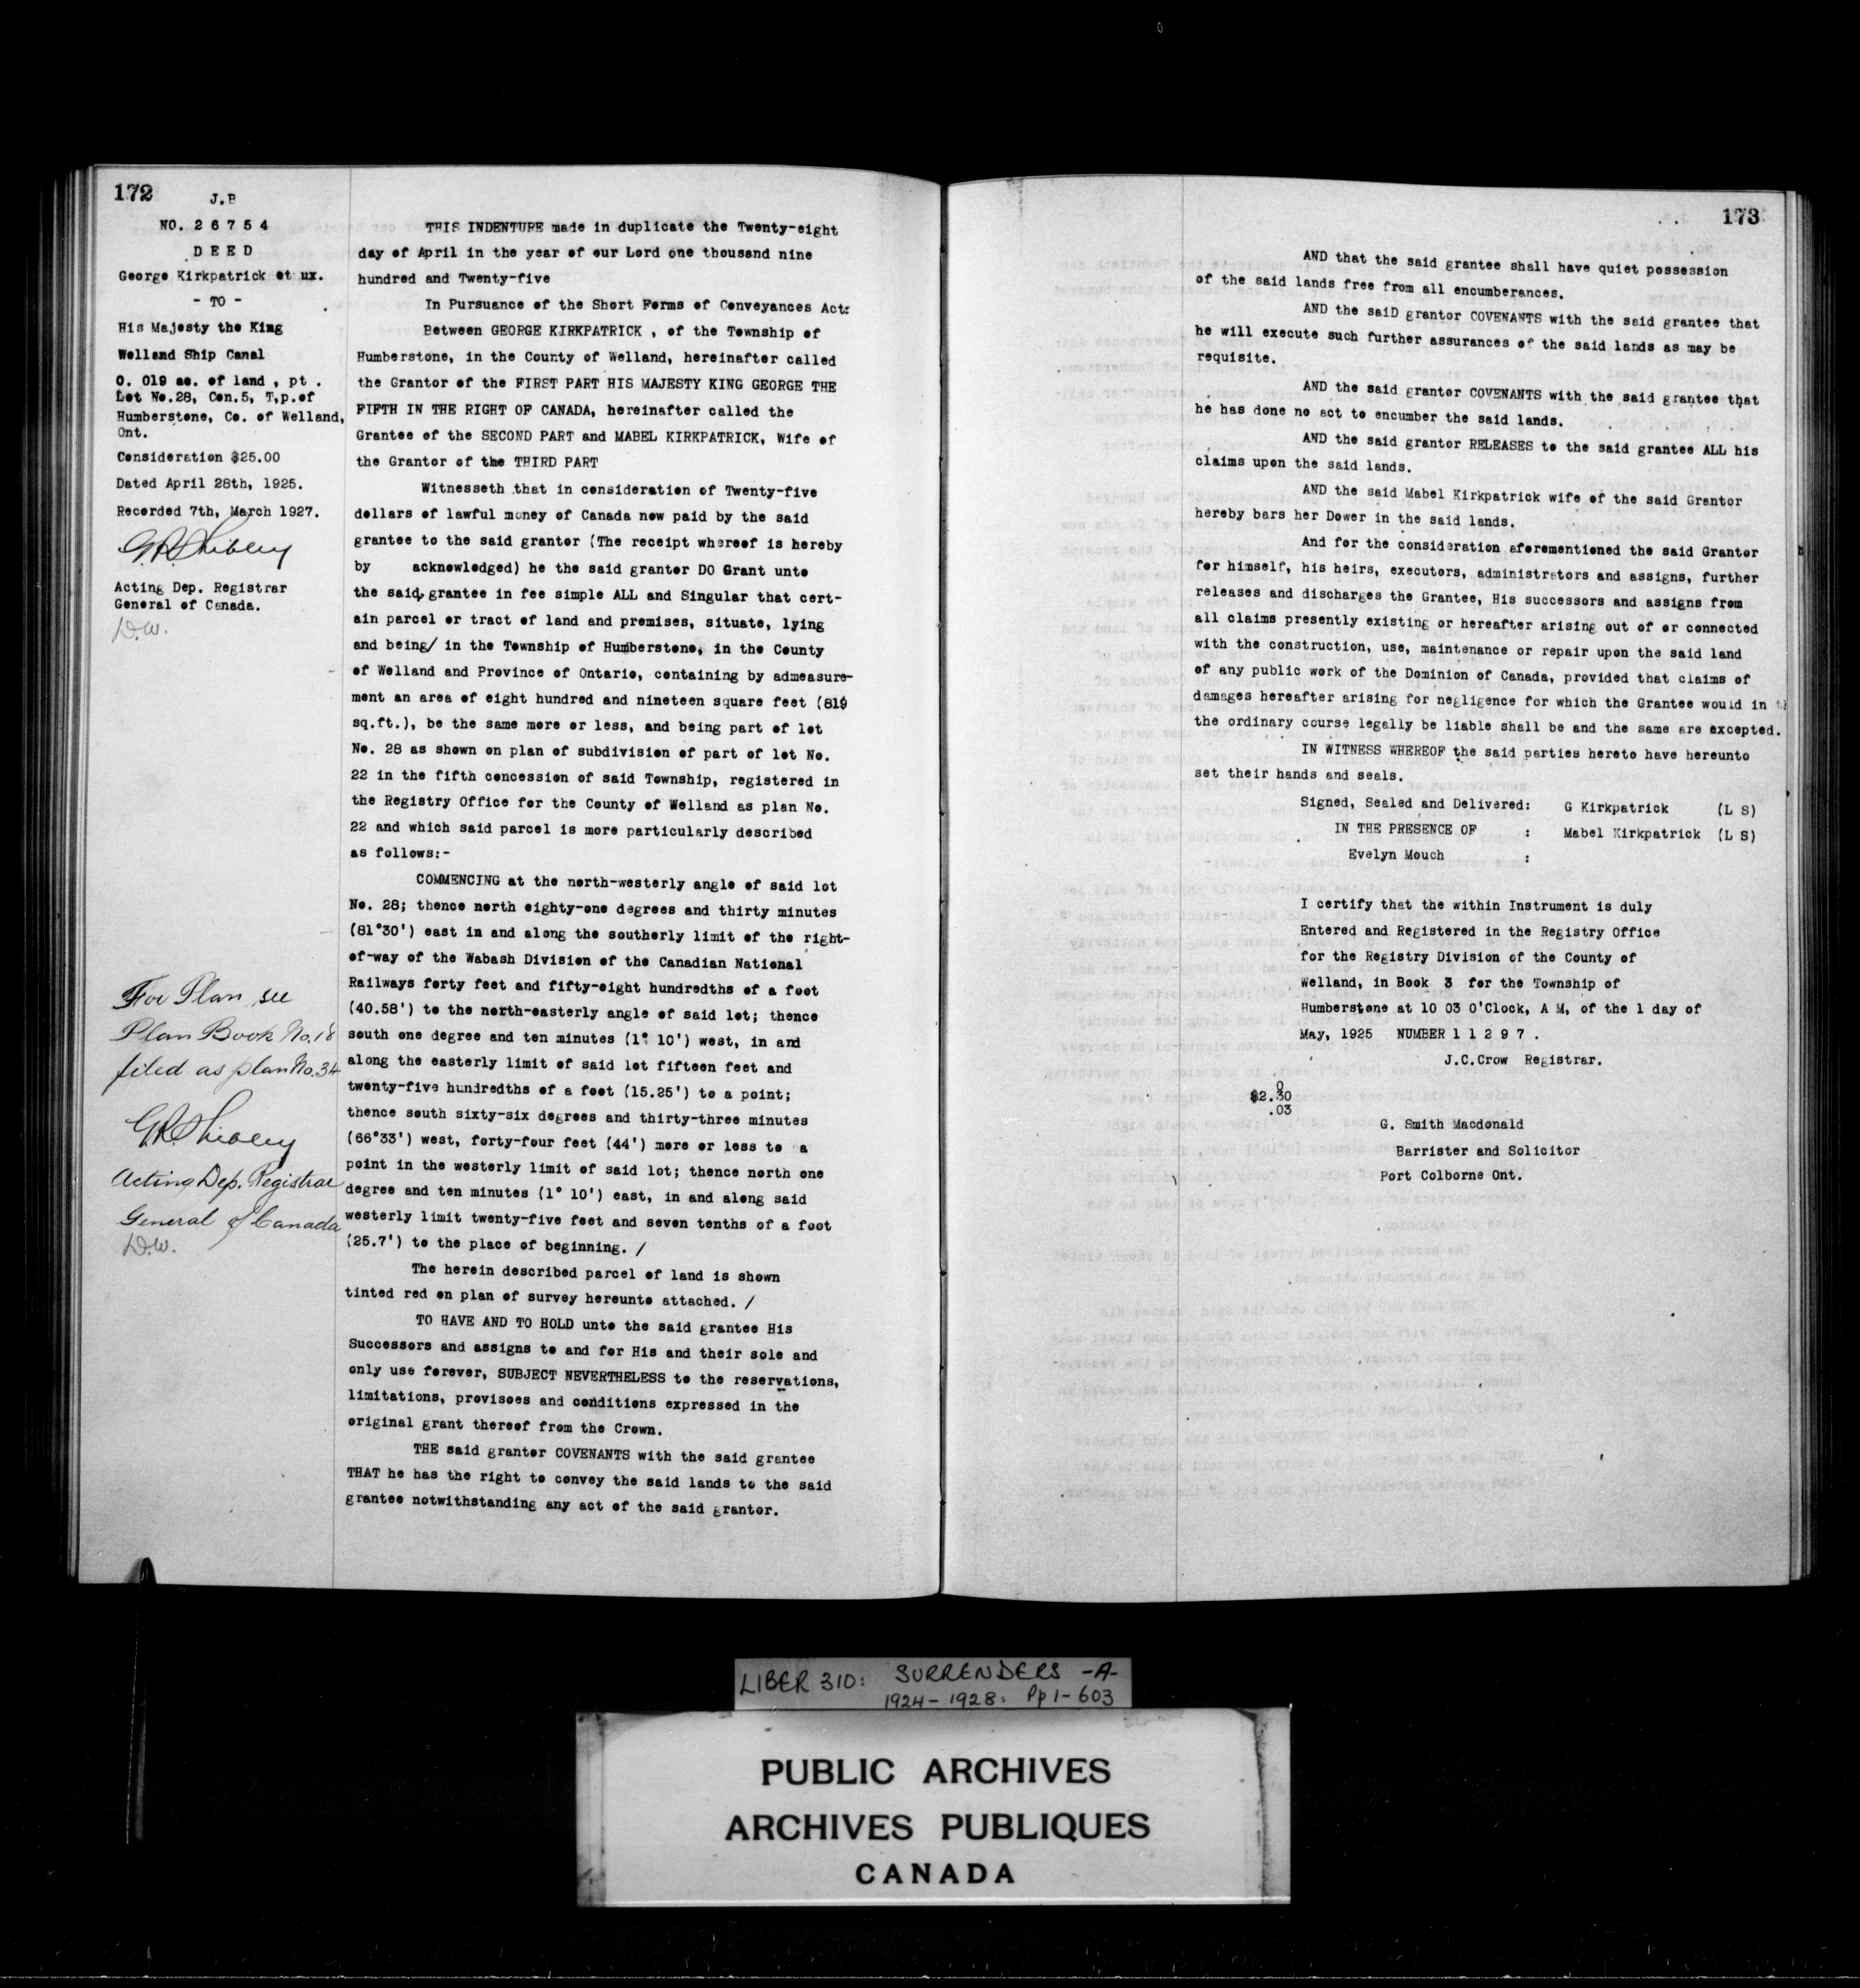 172
J.P
NO. 2 6 7 5 4
D E E D
George Kirkpatrick et ux.
- TO -
His Majesty the King
Welland Ship Canal
0. 019 ac. of land , pt .
Lot No.28, Con.5, T,p.of
Humberstone, Co. of Welland,
Ont.
Consideration $25.00
Dated April 28th, 1925.
Recorded 7th, March 1927.
G.R. Shibley
Acting Dep. Registrar
General of Canada.
D.W.
For Plan see
Plan Book No. 18
filed as plan No. 34
G.R. Shibley
Acting Dep. Registrar
General of Canada
D.W.
THIS INDENTURE made in duplicate the Twenty-eight
day of April in the year of our Lord one thousand nine
hundred and Twenty-five
In Pursuance of the Short Forms of Conveyances Act:
Between GEORGE KIRKPATRICK , of the Township of
Humberstone, in the County of Welland, hereinafter called
the Grantor of the FIRST PART HIS MAJESTY KING GEORGE THE
FIFTH IN THE RIGHT OF CANADA, hereinafter called the
Grantee of the SECOND PART and MABEL KIRKPATRICK, Wife of
the Grantor of the THIRD PART
Witnesseth that in consideration of Twenty-five
dollars of lawful money of Canada now paid by the said
grantee to the said grantor (The receipt whereof is hereby
by acknowledged) he the said grantor DO Grant unto
the said grantee in fee simple ALL and Singular that cert-
ain parcel or tract of land and premises, situate, lying
and being/ in the Township of Humberstone, in the County
of Welland and Province of Ontario, containing by admeasure-
ment an area of eight hundred and nineteen square feet (819
sq.ft.), be the same more or less, and being part of lot
No. 28 as shown on plan of subdivision of part of lot No.
22 in the fifth concession of said Township, registered in
the Registry Office for the County of Welland as plan No.
22 and which said parcel is more particularly described
as follows:-
COMMENCING at the north-westerly angle of said lot
No. 28; thence north eighty-one degrees and thirty minutes
(81°30') east in and along the southerly limit of the right-
of-way of the Wabash Division of the Canadian National
Railways forty feet and fifty-eight hundredths of a foot
(40.58') to the north-easterly angle of said lot; thence
south one degree and ten minutes (1° 10') west, in and
along the easterly limit of said lot fifteen feet and
twenty-five hundredths of a foot (15.25') to a point;
thence south sixty-six degrees and thirty-three minutes
(66°33') west, forty-four feet (44') more or less to a
point in the westerly limit of said lot; thence north one
degree and ten minutes (1° 10') east, in and along said
westerly limit twenty-five feet and seven tenths of a foot
(25.7') to the place of beginning. /
The herein described parcel of land is shown
tinted red on plan of survey hereunto attached. /
TO HAVE AND TO HOLD unto the said grantee His
Successors and assigns to and for His and their sole and
only use forever, SUBJECT NEVERTHELESS to the reservations,
limitations, provisoes and conditions expressed in the
original grant thereof from the Crown.
THE said grantor COVENANTS with the said grantee
THAT he has the right to convey the said lands to the said
grantee notwithstanding any act of the said grantor.
173
AND that the said grantee shall have quiet possession
of the said lands free from all encumberances.
AND the saiD grantor COVENANTS with the said grantee that
he will execute such further assurances of the said lands as may be
requisite.
AND the said grantor COVENANTS with the said grantee that
he has done no act to encumber the said lands.
AND the said grantor RELEASES to the said grantee ALL his
claims upon the said lands.
AND the said Mabel Kirkpatrick wife of the said Grantor
hereby bars her Dower in the said lands.
And for the consideration aforementioned the said Grantor
for himself, his heirs, executors, administrators and assigns, further
releases and discharges the Grantee, His successors and assigns from
all claims presently existing or hereafter arising out of or connected
with the construction, use, maintenance or repair upon the said land
of any public work of the Dominion of Canada, provided that claims of
damages hereafter arising for negligence for which the Grantee would in
the ordinary course legally be liable shall be and the same are excepted.
IN WITNESS WHEREOF the said parties hereto have hereunto
set their hands and seals.
Signed, Sealed and Delivered: G Kirkpatrick (L S)
IN THE PRESENCE OF : Mabel Kirkpatrick (L S)
Evelyn Mouch :
I certify that the within Instrument is duly
Entered and Registered in the Registry Office
for the Registry Division of the County of
Welland, in Book 3 for the Township of
Humberstone at 10 03 O'Clock, A M, of the 1 day of
May, 1925 NUMBER 1 1 2 9 7 .
J.C.Crow Registrar.
0
$2.30
.03
G. Smith Macdonald
Barrister and Solicitor
Port Colborne Ont.
LIBER 310: SURRENDERS -A-
1924 - 1928. Pp 1 - 603
PUBLIC ARCHIVES
ARCHIVES PUBLIQUES
CANADA